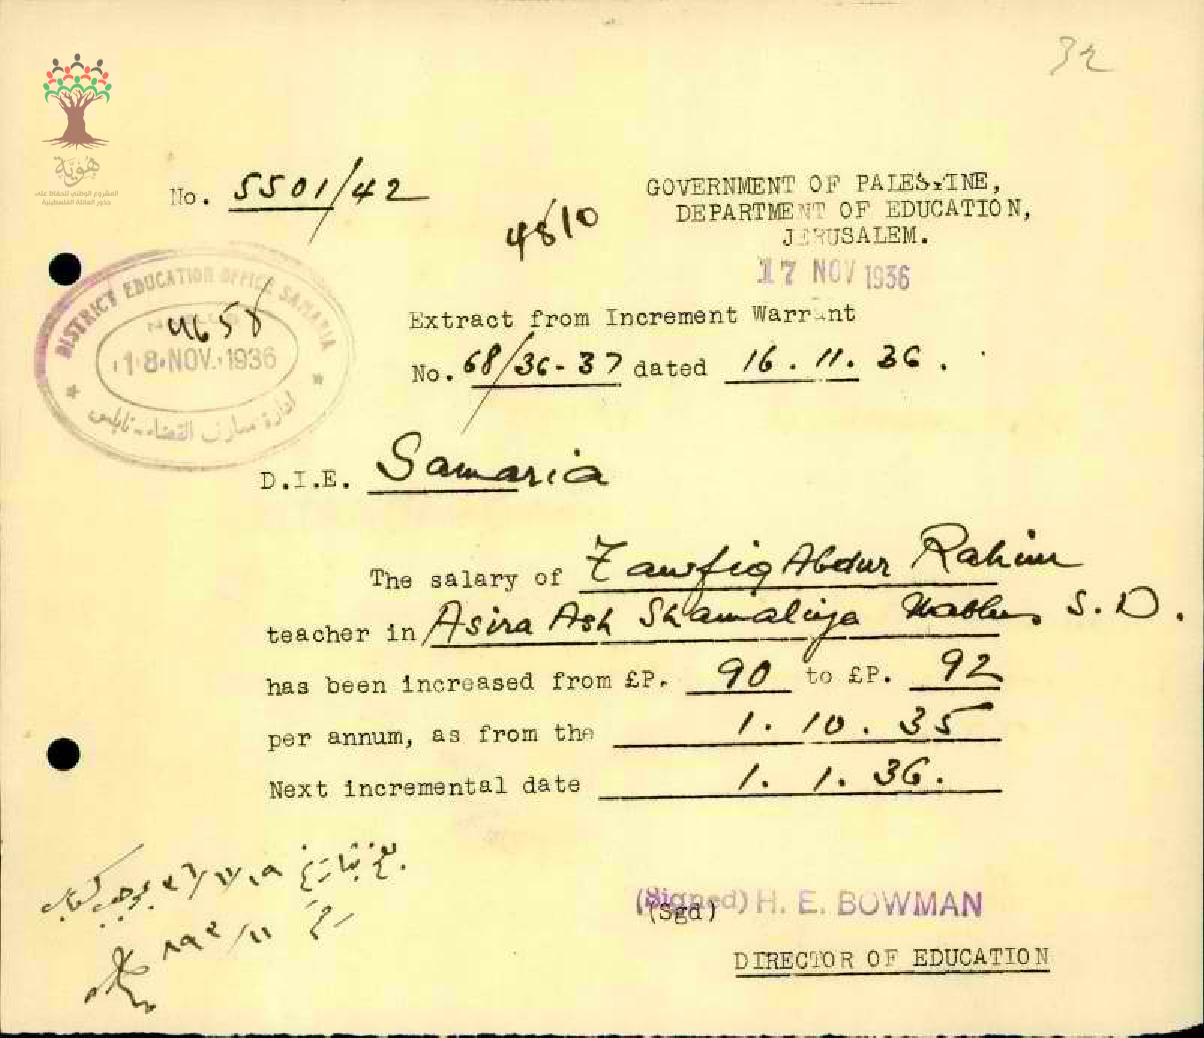 32
هُويَّة
المشروع الوطني للحفاظ على
جذور العائلة الفلسطينية
No. 5501/42
4810
GOVERNMENT OF PALESTINE,
DEPARTMENT OF EDUCATION,
JERUSALEM.
17 NOV 1936
DISTRICT EDUCATION OFFICE SAMARIA
4658
18 NOV. 1936
ادارة معارف القضاء - نابلس
Extract from Increment Warrant
No. 68/36-37 dated 16.11.36.
D.I.E. Samaria
The salary of Tawfiq Abdur Rahim
teacher in Asira Ash Shamaliya Nablus S.D.
has been increased from £P. 90 to £P. 92
per annum, as from the 1.10.35
Next incremental date 1.1.36.
(Signed) H. E. BOWMAN
(Sgd)
DIRECTOR OF EDUCATION